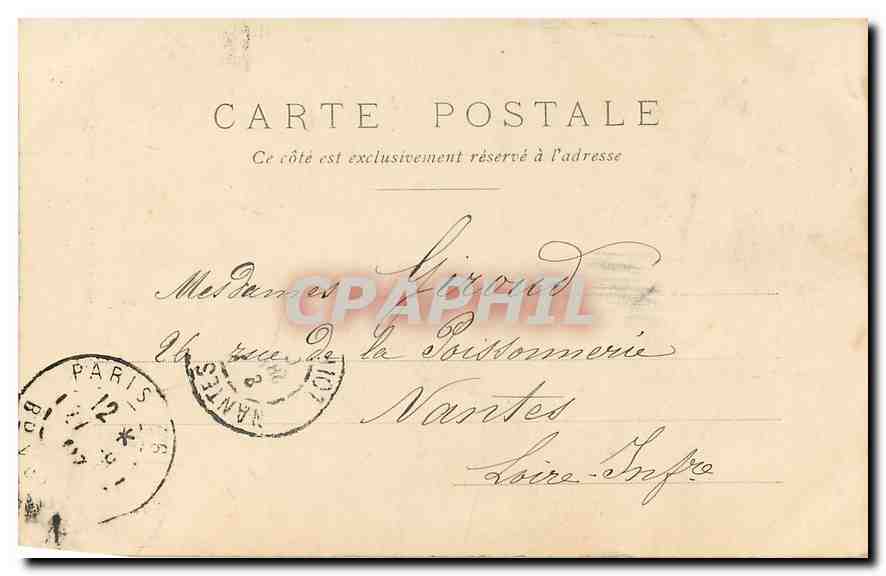 CARTE POSTALE
Ce côté est exclusivement réservé à l'adresse
Mesdames Giroud
CPAPHIL
26 rue de la Poissonnerie
Nantes
Loire-Infre
PARIS
12
NANTES